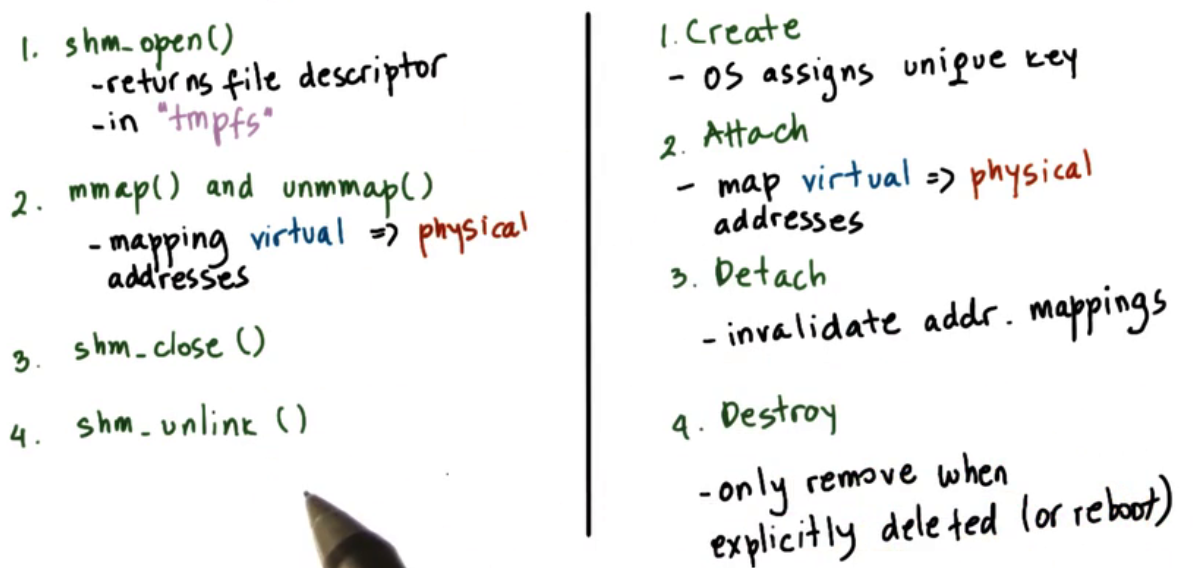 1. shm_open()
-returns file descriptor
-in "tmpfs"
2. mmap() and unmmap()
-mapping virtual => physical
addresses
3. shm_close()
4. shm_unlink ()
1. Create
- OS assigns unique key
2. Attach
- map virtual => physical
addresses
3. Detach
- invalidate addr. mappings
4. Destroy
-only remove when
explicitly deleted (or reboot)